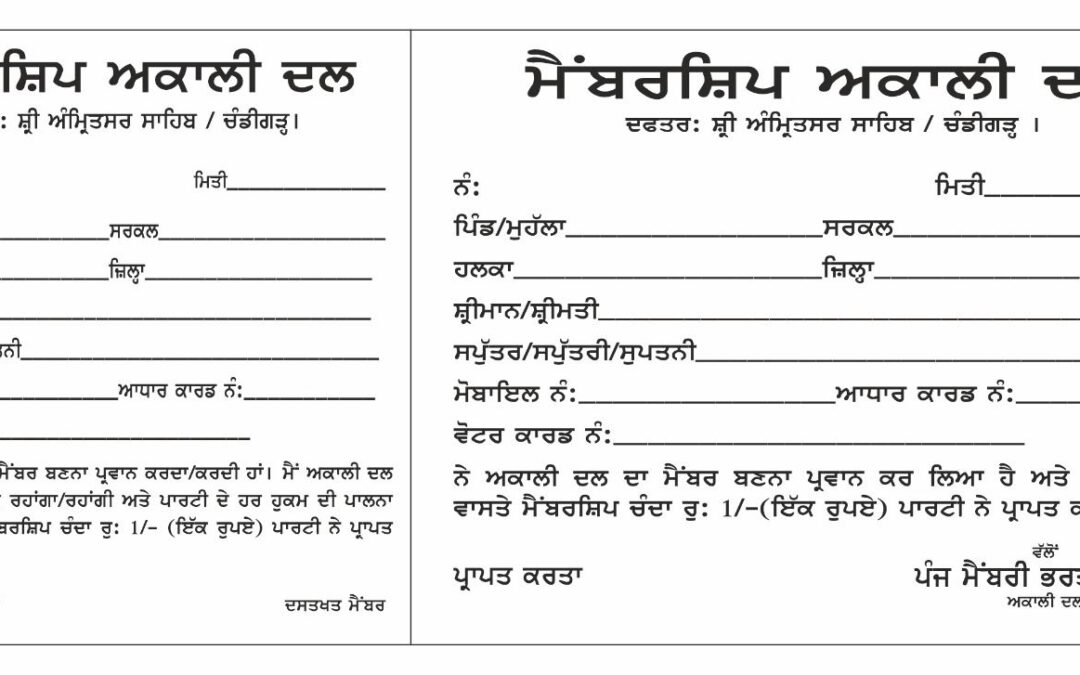 ਸ਼ਿਪ ਅਕਾਲੀ ਦਲ
: ਸ਼੍ਰੀ ਅੰਮ੍ਰਿਤਸਰ ਸਾਹਿਬ / ਚੰਡੀਗੜ੍ਹ।
ਮਿਤੀ_______________
___________ਸਰਕਲ______________________
___________ਜ਼ਿਲ੍ਹਾ______________________
ਨੀ___________________________________
____________ਆਧਾਰ ਕਾਰਡ ਨੰ:_____________
ਮੈਂਬਰ ਬਣਨਾ ਪ੍ਰਵਾਨ ਕਰਦਾ/ਕਰਦੀ ਹਾਂ। ਮੈਂ ਅਕਾਲੀ ਦਲ
ਰਹਾਂਗਾ/ਰਹਾਂਗੀ ਅਤੇ ਪਾਰਟੀ ਦੇ ਹਰ ਹੁਕਮ ਦੀ ਪਾਲਨਾ
ਬਰਸ਼ਿਪ ਚੰਦਾ ਰੁ: 1/- (ਇੱਕ ਰੁਪਏ) ਪਾਰਟੀ ਨੇ ਪ੍ਰਾਪਤ
ਦਸਤਖਤ ਮੈਂਬਰ
ਮੈਂਬਰਸ਼ਿਪ ਅਕਾਲੀ ਦ
ਦਫਤਰ: ਸ਼੍ਰੀ ਅੰਮ੍ਰਿਤਸਰ ਸਾਹਿਬ / ਚੰਡੀਗੜ੍ਹ ।
ਨੰ: ਮਿਤੀ_________
ਪਿੰਡ/ਮੁਹੱਲਾ____________________ਸਰਕਲ______________
ਹਲਕਾ________________________ਜ਼ਿਲ੍ਹਾ________________
ਸ਼੍ਰੀਮਾਨ/ਸ਼੍ਰੀਮਤੀ_____________________________________
ਸਪੁੱਤਰ/ਸਪੁੱਤਰੀ/ਸੁਪਤਨੀ______________________________
ਮੋਬਾਇਲ ਨੰ:____________________ਆਧਾਰ ਕਾਰਡ ਨੰ:_____
ਵੋਟਰ ਕਾਰਡ ਨੰ:________________________________
ਨੇ ਅਕਾਲੀ ਦਲ ਦਾ ਮੈਂਬਰ ਬਣਨਾ ਪ੍ਰਵਾਨ ਕਰ ਲਿਆ ਹੈ ਅਤੇ
ਵਾਸਤੇ ਮੈਂਬਰਸ਼ਿਪ ਚੰਦਾ ਰੁ: 1/-(ਇੱਕ ਰੁਪਏ) ਪਾਰਟੀ ਨੇ ਪ੍ਰਾਪਤ ਕ
ਵੱਲੋਂ
ਪ੍ਰਾਪਤ ਕਰਤਾ ਪੰਜ ਮੈਂਬਰੀ ਭਰਤ
ਅਕਾਲੀ ਦਲ